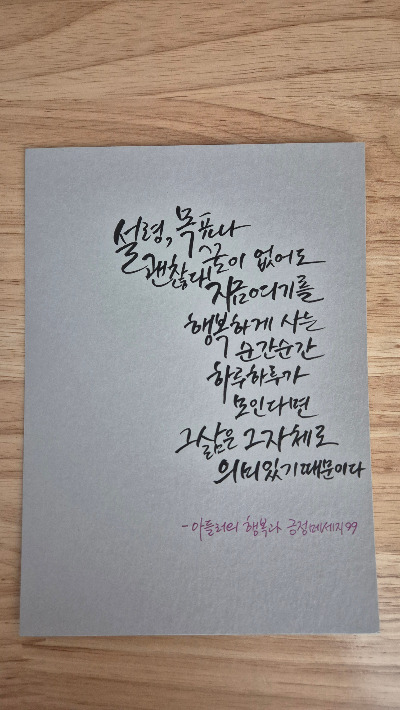 설령, 목표나
꿈이 없어도
괜찮다!
지금여기를
행복하게 사는
순간순간
하루하루가
모인다면
그삶은 그자체로
의미있기때문이다
- 아들러의 행복과 긍정메세지99